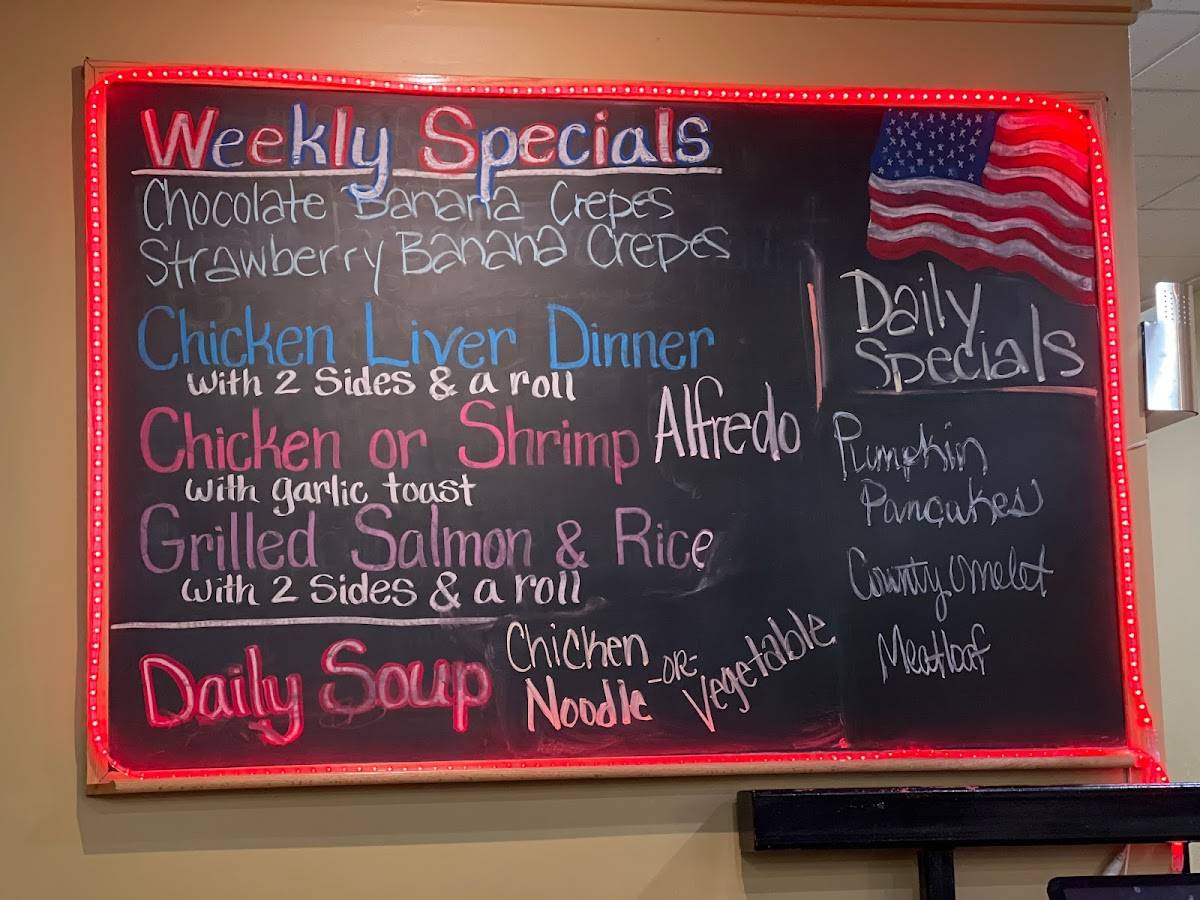 Weekly Specials
Chocolate Banana Crepes
Strawberry Banana Crepes
Chicken Liver Dinner
with 2 Sides & a roll
Chicken or Shrimp Alfredo
with garlic toast
Grilled Salmon & Rice
with 2 Sides & a roll
Daily Soup
Chicken
Noodle
-OR-
Vegetable
Daily
Specials
Pumpkin
Pancakes
County Omelet
Meatloaf